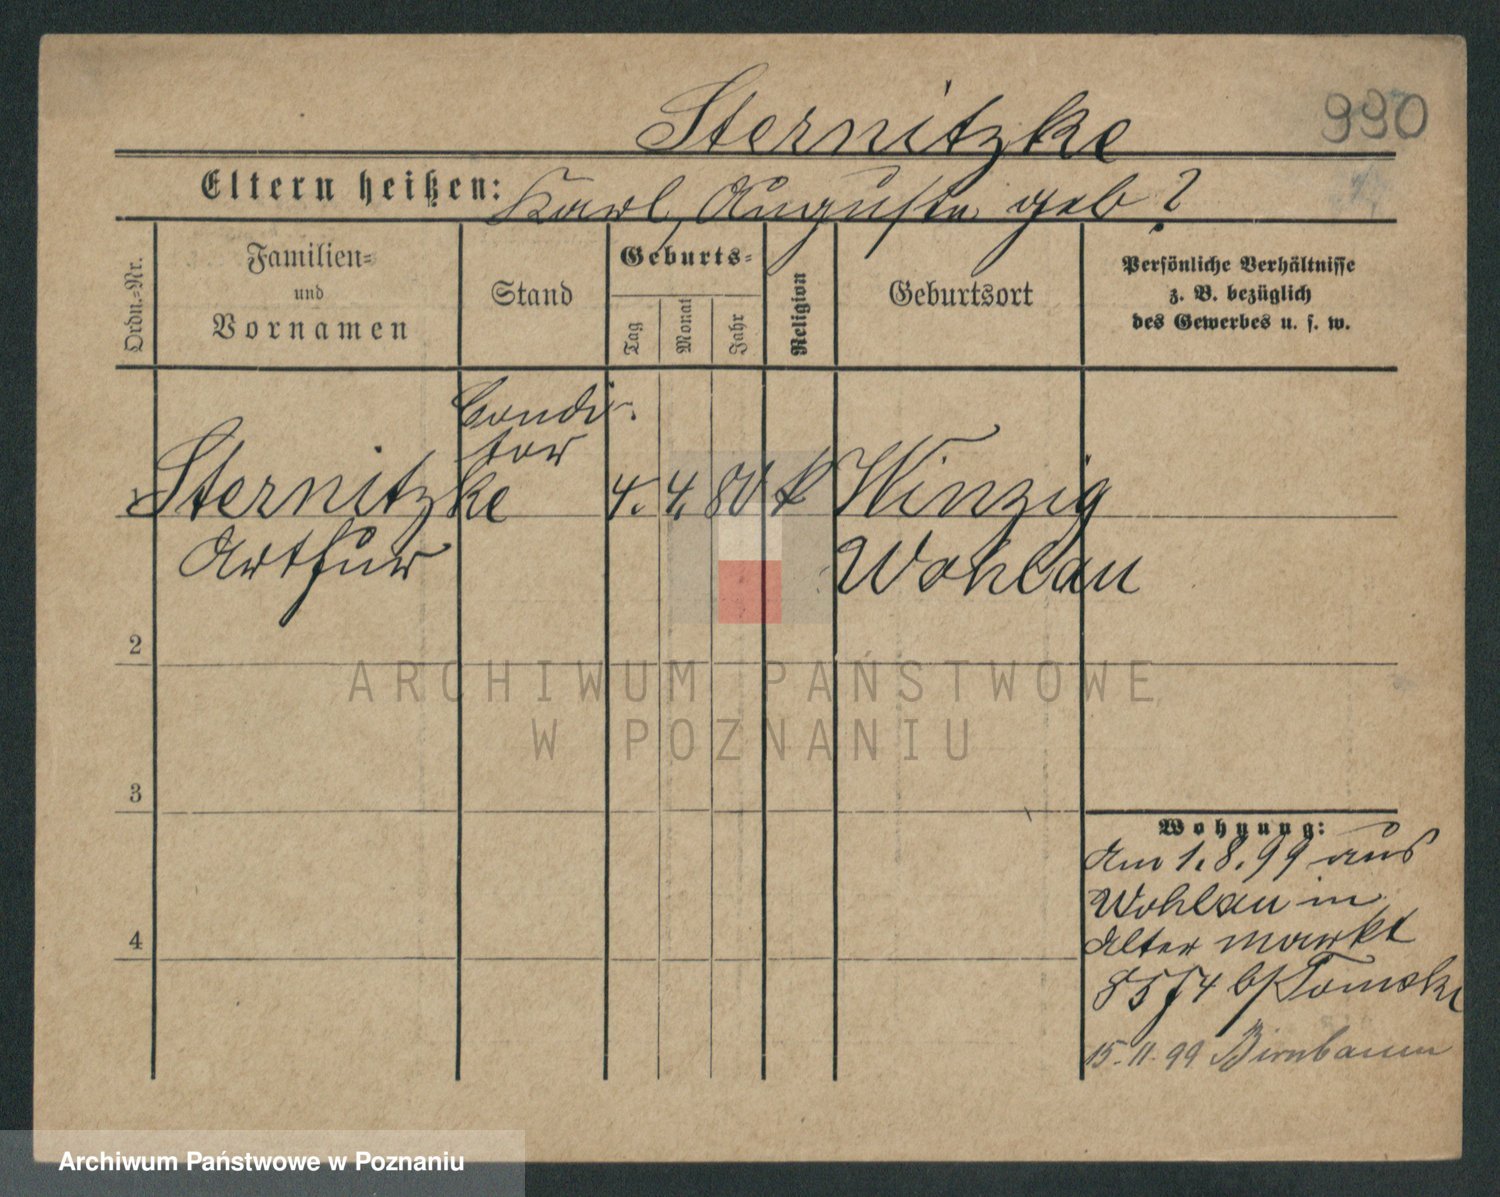 Sternitzke
990
Eltern heißen: Karl, Auguste geb ?
Ordn.=Nr.
Familien=
und
Vornamen
Stand
Geburts=
Tag
Monat
Jahr
Religion
Geburtsort
Persönliche Verhältnisse
z. B. bezüglich
des Gewerbes u. s. w.
Condi-
tor
1 Sternitzke 4. 4. 80 k Winzig
Arthur Wohlau
2
ARCHIWUM PAŃSTWOWE
W POZNANIU
3
Wohnung:
Am 1.8.99 aus
Wohlau in
Alter Markt
b/Tomski
4
15.11.99 Birnbaum
Archiwum Państwowe w Poznaniu